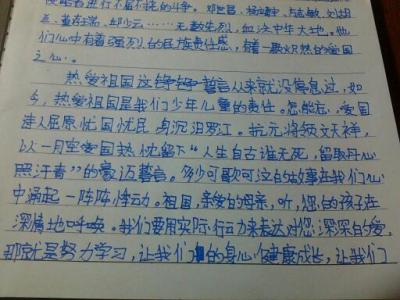 侵略者进行不屈不挠的斗争。邓世昌、杨靖宇、左志敏、刘胡
兰、董存瑞、邱少云……无数先烈,血沃中华大地。他
们心中有着强烈的民族责任感,有着一颗炽热的爱国
之心。
热爱祖国这铮铮誓言从来就没停息过,如
今,热爱祖国是我们少年儿童的责任。怎能忘,爱国
诗人屈原忧国忧民身沉汨罗江。抗元将领文天祥,
以一身室爱国热忱留下“人生自古谁无死,留取丹心
照汗青”的豪迈誓言。多少可歌可泣的故事在我们心
中涌起一阵阵悸动。祖国,亲爱的母亲,听,您的孩子在
深情地呼唤。我们要用实际行动来表达对您深深的爱,
那就是努力学习,让我们的身心健康成长,让我们